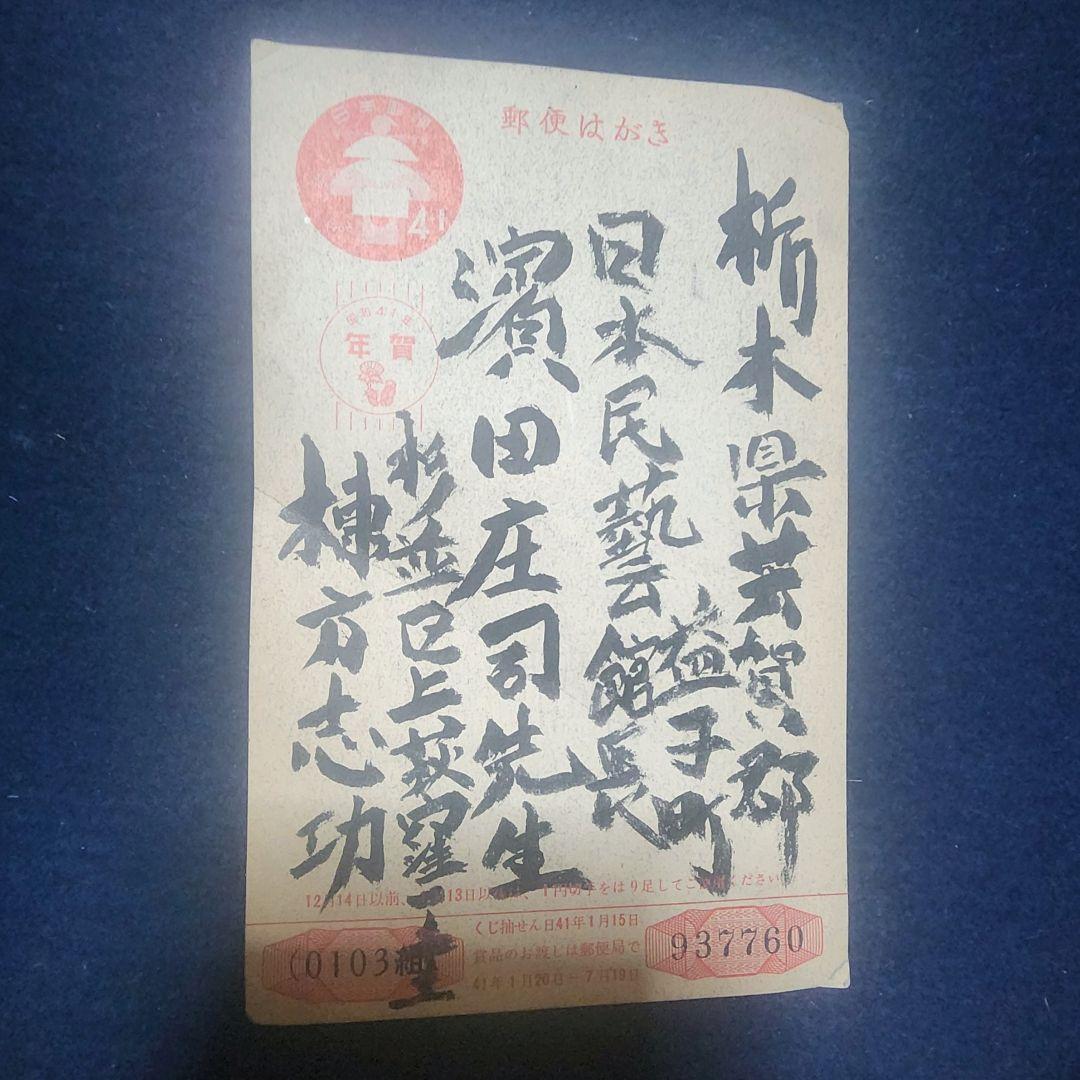 郵便はがき
日本郵便
41
昭和41年
年賀
栃木県芸賀郡
益子町
日本民藝館長
濱田庄司先生
杉並区上荻窪
棟方志功
12月14日以前、
13日以
円切手をはり足してご
ください
くじ抽せん日41年1月15日
賞品のお渡しは郵便局で
41年1月20日−7月19日
0103組
937760